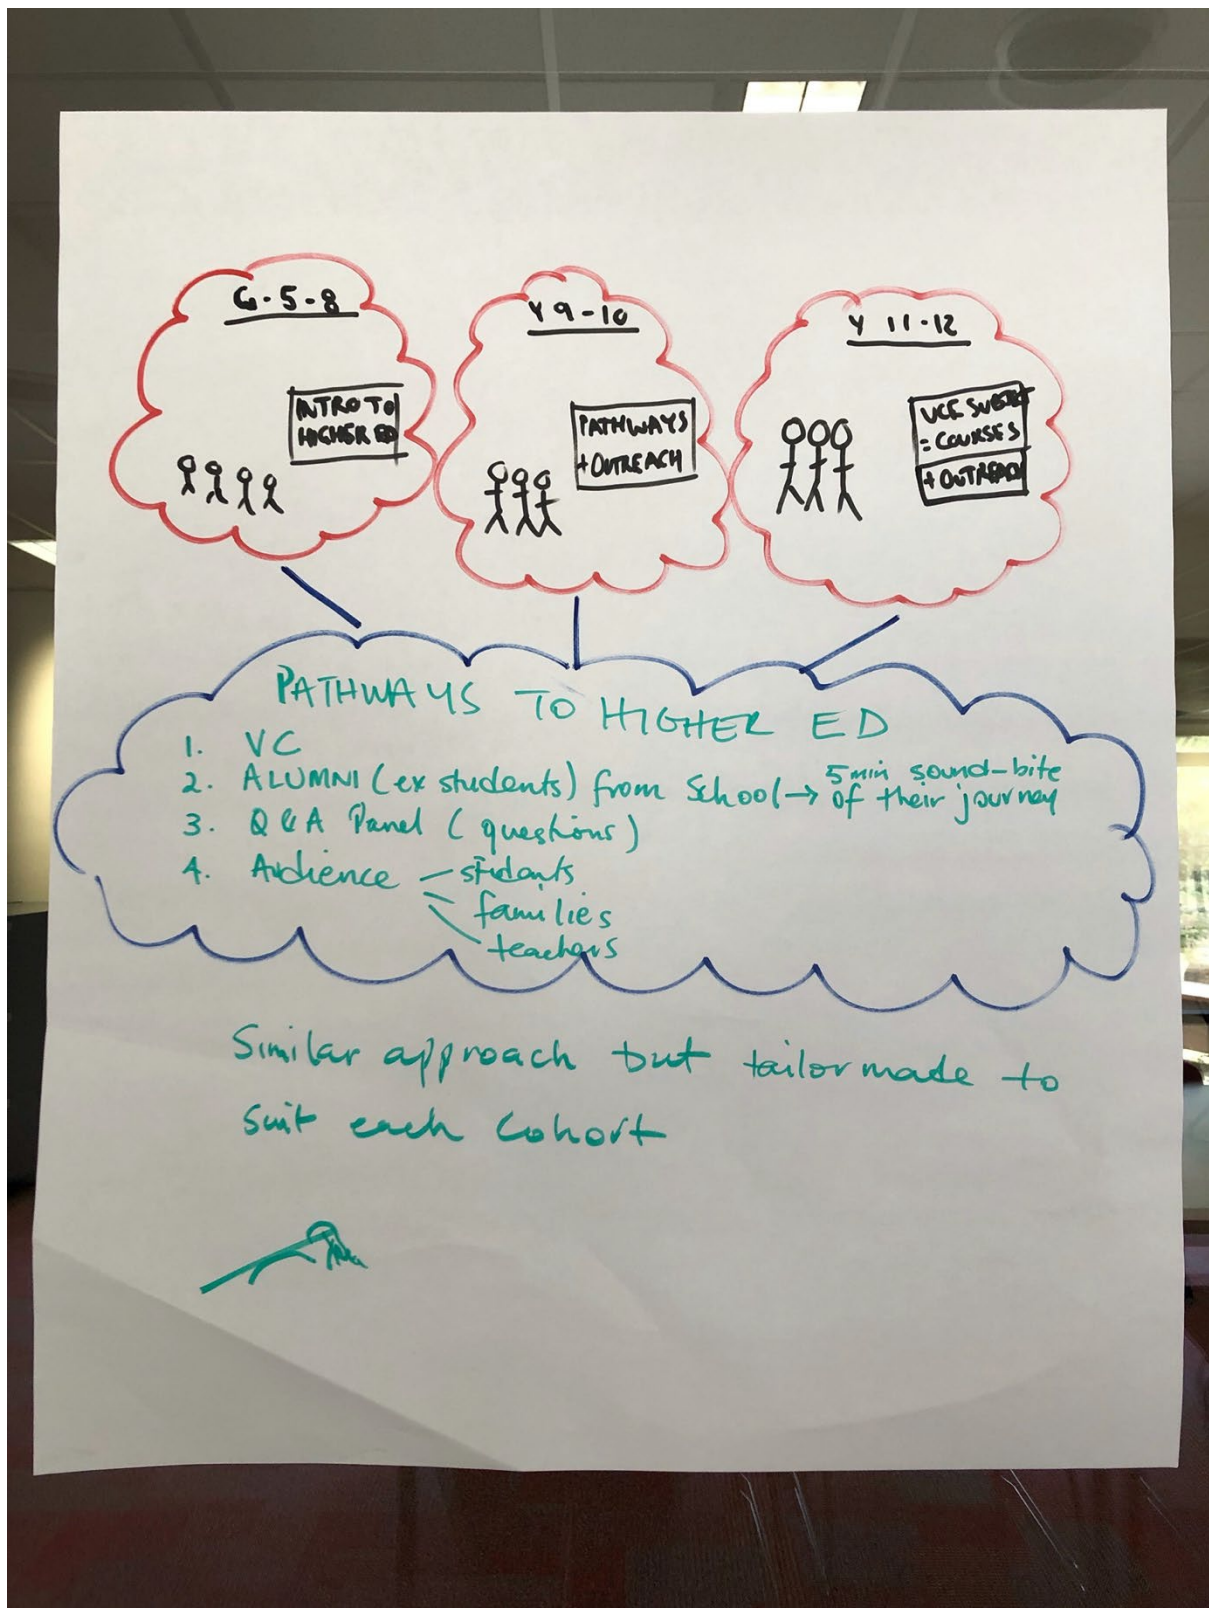 G-5-8
INTRO TO
HIGHER ED
Y 9-10
PATHWAYS
+ OUTREACH
Y 11-12
VCE SUBJECT
= COURSES
+ OUTREACH
PATHWAYS TO HIGHER ED
1. VC
2. ALUMNI (ex students) from School → 5 min sound-bite
of their journey
3. Q & A Panel (questions)
4. Audience — students
families
teachers
Similar approach but tailor made to
suit each cohort